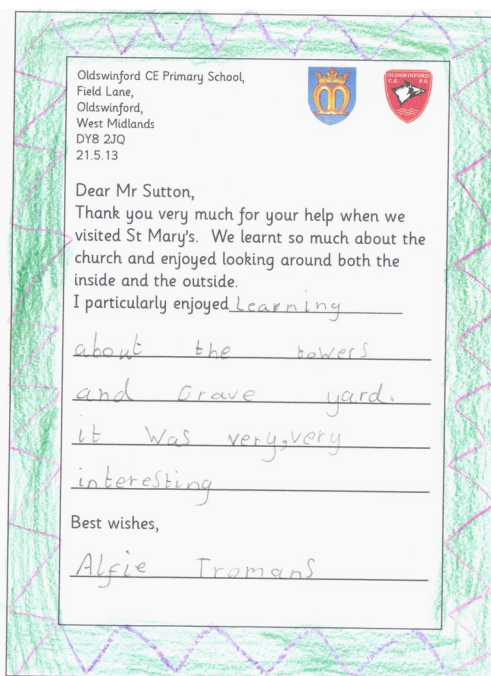 Oldswinford CE Primary School,
Field Lane,
Oldswinford,
West Midlands
DY8 2JQ
21.5.13
OLDSWINFORD
C.E. P.S.
Dear Mr Sutton,
Thank you very much for your help when we
visited St Mary's. We learnt so much about the
church and enjoyed looking around both the
inside and the outside.
I particularly enjoyed Learning
about the towers
and Grave yard.
it was very,very
interesting
Best wishes,
Alfie Tromans